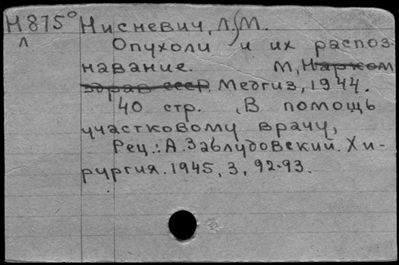 Н875° Нисневич, Л. М.
Л Опухоли и их распоз-
навание. М, Нарком
здрав СССР Медгиз, 1944.
40 стр. В помощь
участковому врачу,
Рец.: А. Заблудовский. Хи-
рургия. 1945, 3, 92-93.